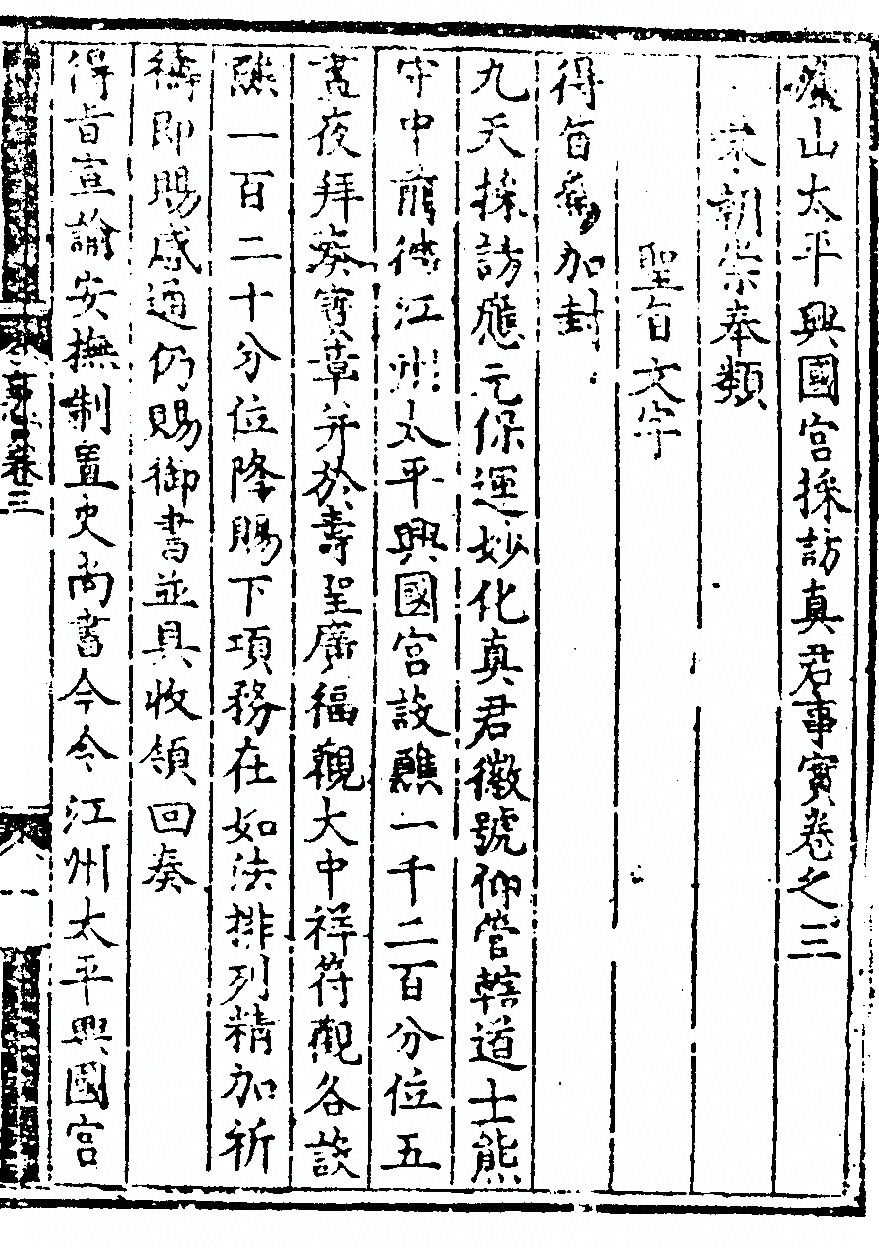 山太平興國宮採訪真君事實卷之三
朝崇奉類
聖旨文字
得旨加封
九天採訪應元保運妙化真君徽號仰管轄道士熊
守中前徃江州太平興國宮設醮一千二百分位五
晝夜拜奏寳章并於壽聖廣福觀大中祥符觀各設
醮一百二十分位降賜下項務在如法排列精加祈
禱即賜感通仍賜御書並具收領回奏
得旨宣諭安撫制置史尚書今令江州太平興國宮
事實卷三
一